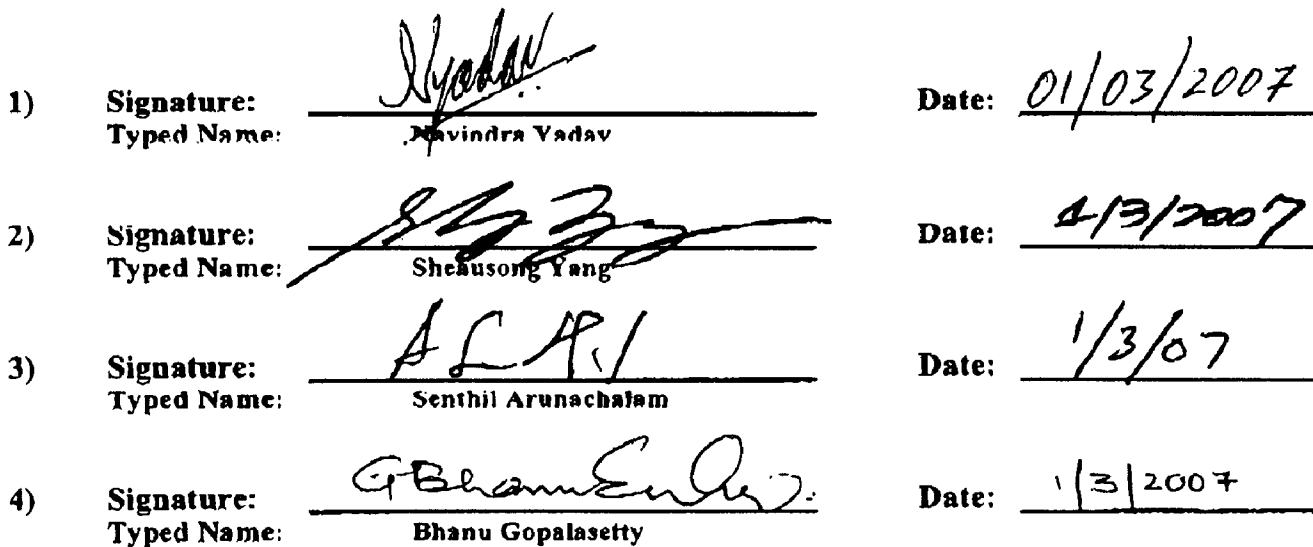 1) Signature: Nyadav Date: 01/03/2007
Typed Name: Navindra Yadav
2) Signature: Date: 1/3/2007
Typed Name: Sheausong Yang
3) Signature: Date: 1/3/07
Typed Name: Senthil Arunachalam
4) Signature: Date: 1/3/2007
Typed Name: Bhanu Gopalasetty